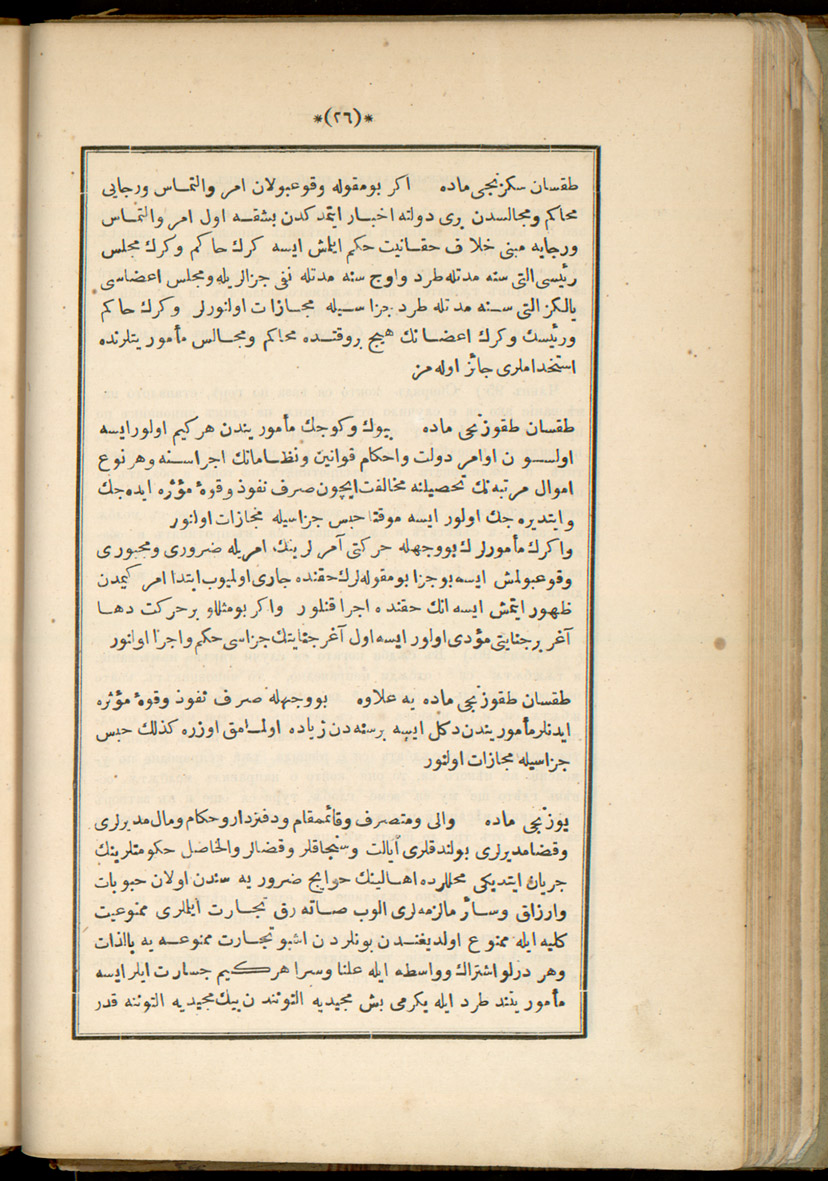 *(٢٦)*
طقسان سكزنجی ماده اكر بومقوله وقوعبولان امر والتماس ورجایی
محاكم ومجالسدن بری دولته اخبار ایتدكدن بشقه اول امر والتماس
ورجایه مبنی خلاف حقانیت حكم ایلمش ایسه كرك حاكم وكرك مجلس
رئیسی التی سنه مدتله طرد واوج سنه مدتله نفی جزالریله ومجلس اعضاسی
یالكز التی سنه مدتله طرد جزاسیله مجازات اولنورلر وكرك حاكم
ورئیسك وكرك اعضانك هیچ بروقتده محاكم ومجالس مأموریتلرنده
استخداملری جائز اوله مز
طقسان طقوزنجی ماده بیوك وكوچك مأموریندن هركیم اولورایسه
اولسون اوامر دولت واحكام قوانین ونظاماتك اجراسنه وهرنوع
اموال مرتبه نك تحصیلنه مخالفت ایچون صرف نفوذ وقوۀ مؤثره ایده جك
وایتدیره جك اولور ایسه موقتا حبس جزاسیله مجازات اولنور
واكرك مأمورلرك بووجهله حركتی آمرلرینك امریله ضروری ومجبوری
وقوعبولمش ایسه بوجزا بومقوله لرك حقنده جاری اولمیوب ابتدا امر كیمدن
ظهور ایتمش ایسه انك حقنده اجرا قلنور واكر بومثللو برحركت دها
آغر برجنایتی مؤدی اولور ایسه اول آغر جنایتك جزاسی حكم واجرا اولنور
طقسان طقوزنجی ماده یه علاوه بووجهله صرف نفوذ وقوۀ مؤثره
ایدنلر مأموریندن دكل ایسه برسنه دن زیاده اولمامق اوزره كذلك حبس
جزاسیله مجازات اولنور
یوزنجی ماده والی ومتصرف وقائممقام ودفتردار وحكام ومال مدیرلری
وقضا مدیرلری بولندقلری ایالت وسنجاقلر وقضالر والحاصل حكومتلرینك
جریان ایتدیكی محللرده اهالینك حوایج ضروریه سندن اولان حبوبات
وارزاق وسائر مالزمه لری الوب صاته رق تجارت ایتملری ممنوعیت
كلیه ایله ممنوع اولدیغندن بونلردن اشبو تجارت ممنوعه یه بالذات
وهر درلو اشتراك وواسطه ایله علنا وسرا هركیم جسارت ایلر ایسه
مأموریتند طرد ایله یكرمی بش مجیدیه التونندن بیك مجیدیه التوننه قدر